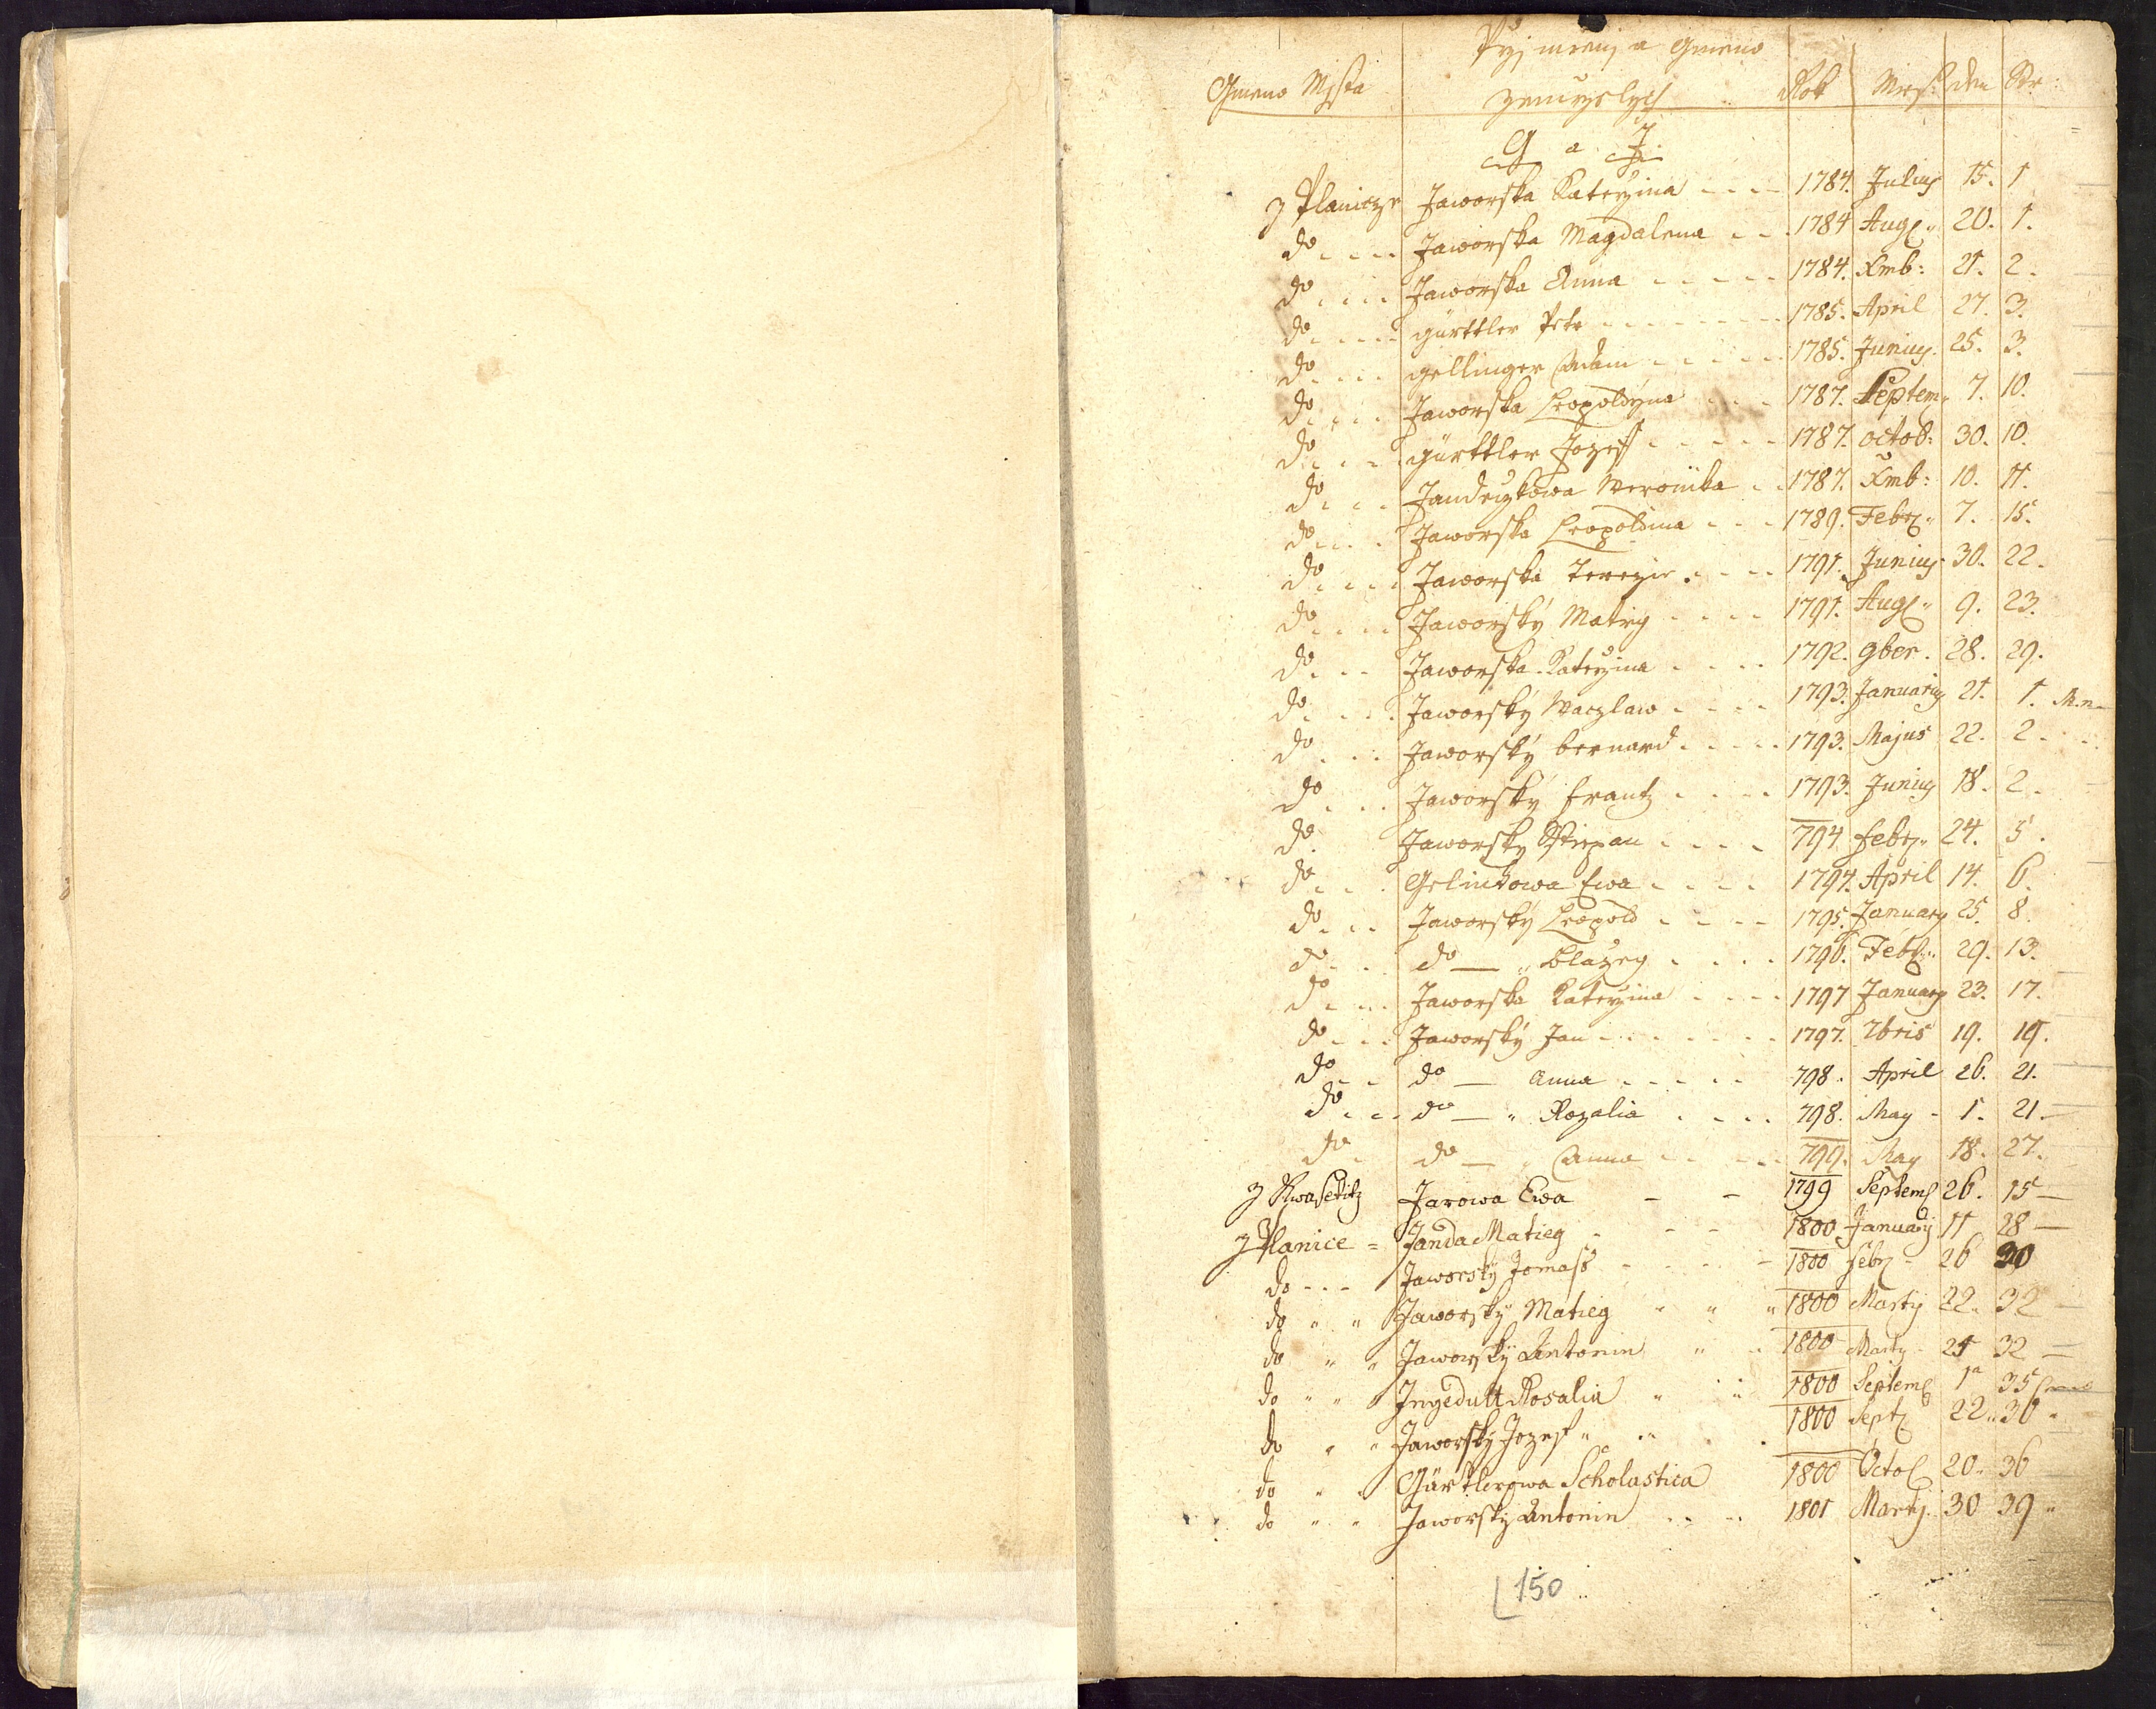 Přyjmenj a Gmeno
Gmeno Mjsta zemrzelych Rok Mes: den Str:
G a J.
z Planicze Jaworska Katerzina 1784. Julius 15. 1
do Jaworska Magdalena 1784 Aug: 20. 1.
do Jaworska Anna 1784. Xmb: 21. 2.
do gürttler Petr 1785. April 27. 3.
do gellinger Adam 1785. Junius. 25. 3.
do Jaworska Leopoldyna 1787. Septem: 7. 10.
do gürttler Jozeff 1787. octob: 30. 10.
do Janduczkowa Weronika 1787. Xmb: 10. 11.
do Jaworska Leopoldina 1789. Febr: 7. 15.
do Jaworska Terezie. 1791. Junius 30. 22.
do Jaworský Matieg 1791. Aug: 9. 23.
do Jaworska Katerzina 1792. 9ber. 28. 29.
do Jaworský Waczlaw 1793. Januarius 21. 1. M.n.
do Jaworský bernard 1793. Majus 22. 2.
do Jaworský frantz 1793. Junius 18. 2.
do Jaworský Sstiepan 794 febr: 24. 5.
do Gelinkowa Ewa 1794. April 14. 6.
do Jaworský Leopold 1795. January 25. 8.
do do — Blazeg 1796. Febr: 29. 13.
do Jaworska Katerzina 1797 January 23. 17.
do Jaworský Jan 1797. 7bris 19. 19.
do do — Anna 798. April 26. 21.
do do — Rozalia 798. May 1. 21.
do do — Anna 799. May 18. 27.
z Kwasetitz Jarowa Ewa 1799 Septemb 26. 15
z Planice = Janda Matieg 1800 Januarij 11 28
do Jaworský Tomass 1800 febr 26 30
do Jaworský Matieg 1800 Martij 22. 32
do Jaworský Antonin 1800 Marty 25 32
do Ingedult Rosalia 1800 Septemb 1a 35
do Jaworský Jozef 1800 Sept 22. 36.
do Gärtlerowa Scholastica 1800 Octob 20. 36
do Jaworský Antonin 1801 Martij. 30 39
150